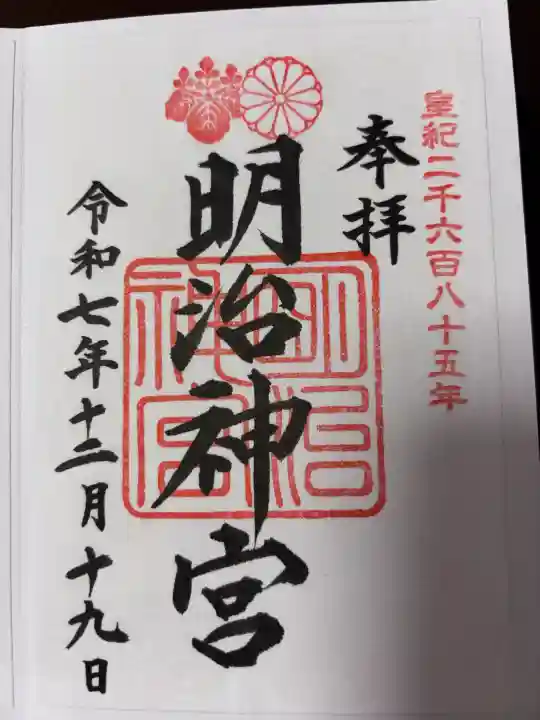 皇紀二千六百八十五年
奉拝
明治神宮
明治
神宮
令和七年十二月十九日